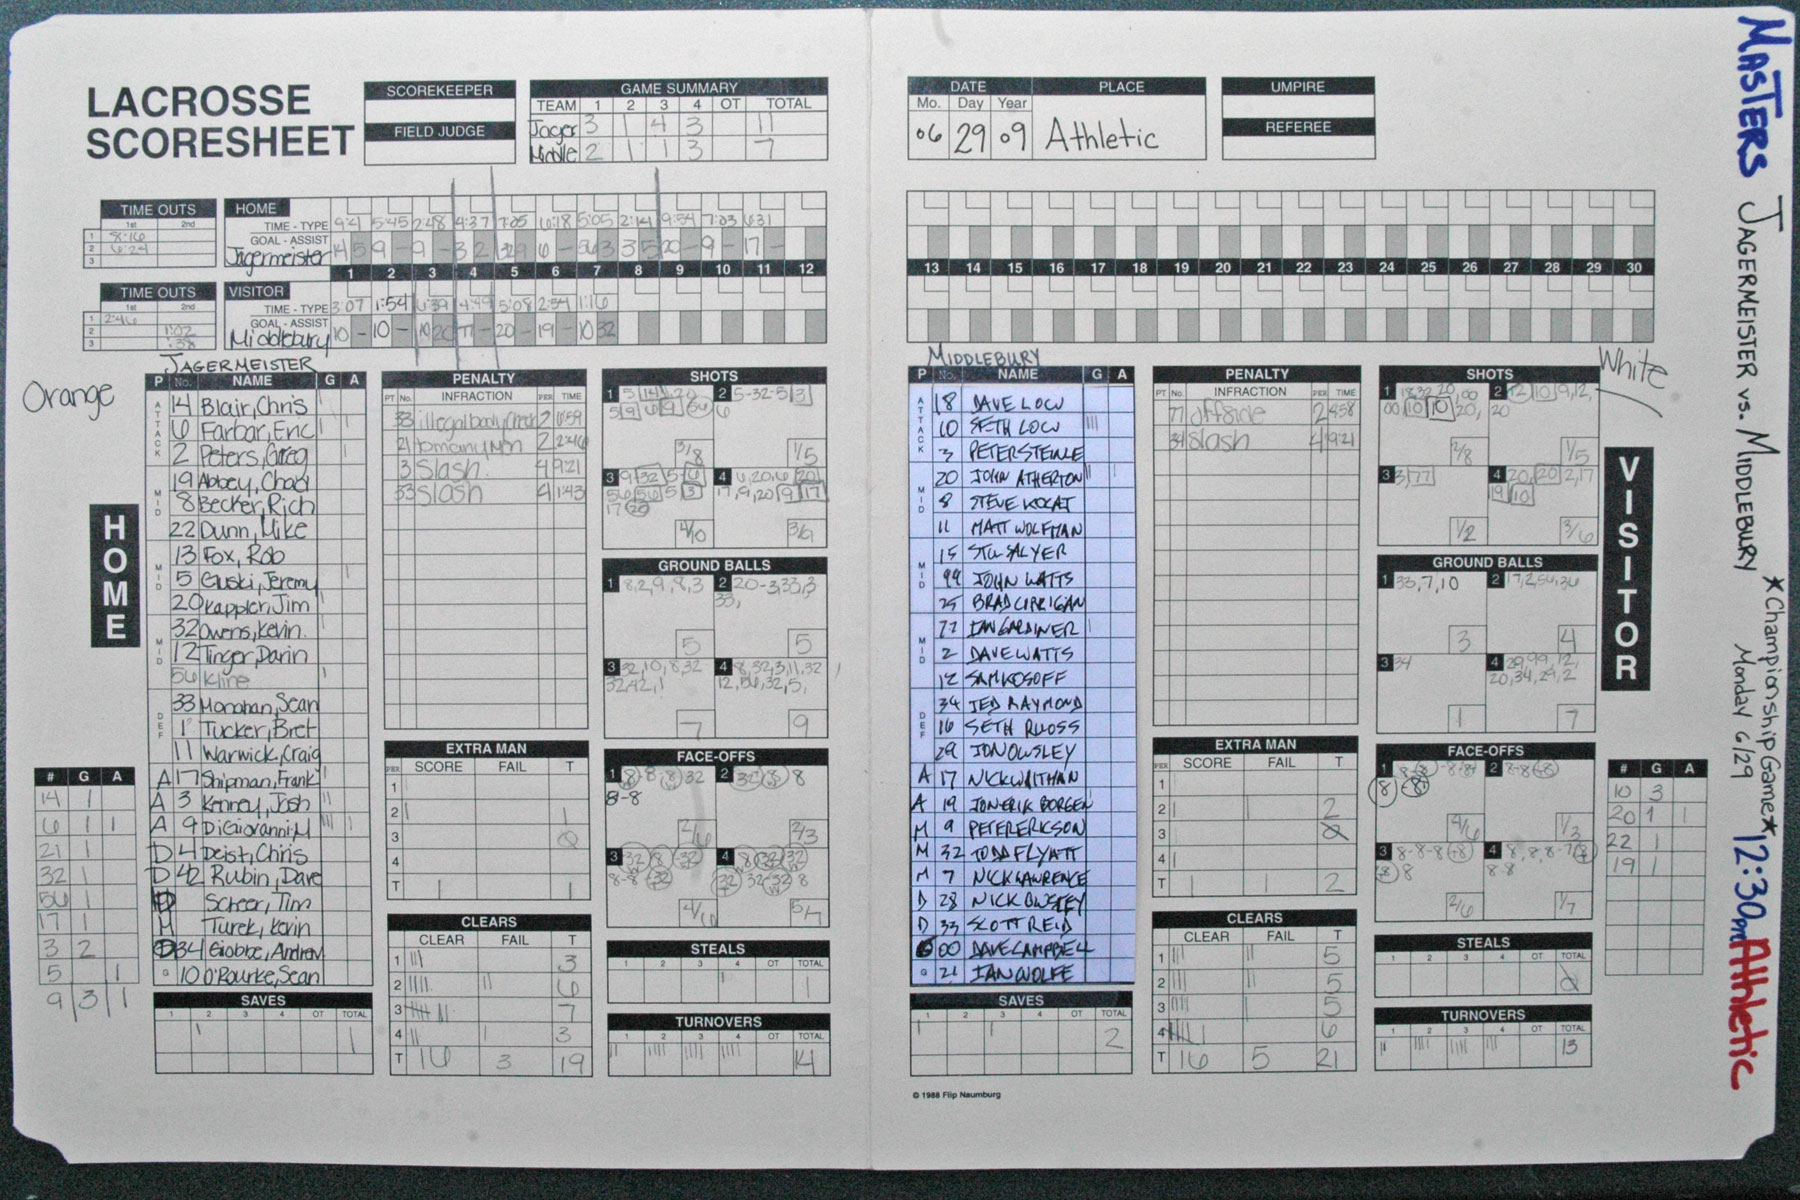 LACROSSE
SCORESHEET
SCOREKEEPER
FIELD JUDGE
GAME SUMMARY
TEAM 1 2 3 4 OT TOTAL
Jager 3 1 4 3 11
Middle 2 1 1 3 7
DATE PLACE
Mo. Day Year
06 29 09 Athletic
UMPIRE
REFEREE
MASTERS JAGERMEISTER vs. MIDDLEBURY
*Championship Game*
Monday 6/29 12:30pm Athletic
TIME OUTS
1st 2nd
1 8:16
2 6:24
3
HOME
TIME - TYPE 9:41 5:45 2:48 4:37 7:05 6:18 5:05 2:14 9:54 7:03 6:31
GOAL - ASSIST
Jagermeister 14 5 9 - 9 - 3 2 32 9 6 - 56 3 3 5 20 - 9 - 17 -
1 2 3 4 5 6 7 8 9 10 11 12
13 14 15 16 17 18 19 20 21 22 23 24 25 26 27 28 29 30
TIME OUTS
1st 2nd
1 2:46
2 1:02
3 :38
VISITOR
TIME - TYPE 3:07 1:54 6:39 4:49 5:08 2:54 1:16
GOAL - ASSIST
Middlebury 10 - 10 - 10 20 77 - 20 - 19 - 10 32
Orange
JAGERMEISTER
P No. NAME G A
ATTACK
14 Blair, Chris
6 Farbar, Eric
2 Peters, Greg
MID
19 Abbey, Chad
8 Becker, Rich
22 Dunn, Mike
MID
13 Fox, Rob
5 Guski, Jeremy
20 Kappler, Jim
MID
32 Owens, Kevin
12 Tinger, Darin
56 Kline
DEF
33 Monahan, Sean
1 Tucker, Bret
11 Warwick, Craig
A 17 Shipman, Frank
A 3 Kenney, Josh
A 9 DiGiovanni, M
D 4 Deist, Chris
D 42 Rubin, Dave
Scheer, Tim
M Turek, Kevin
34 Giobbe, Andrew
G 10 O'Rourke, Sean
HOME
# G A
14 1
6 1 1
21 1
32 1
56 1
17 1
3 2
5 1
9 3 1
SAVES
1 2 3 4 OT TOTAL
1
PENALTY
PT No. INFRACTION PER TIME
33 illegal body check 2 6:59
21 tomanymen 2 2:46
3 Slash. 4 9:21
33 Slash 4 1:43
EXTRA MAN
PER SCORE FAIL T
1
2 1
3 0
4
T 1 1
CLEARS
CLEAR FAIL T
1 3
2 6
3 7
4 3
T 16 3 19
SHOTS
1 3/8
2 5-32-5 3 6 1/5
3 4/10
4 3/6
GROUND BALLS
1 8,2,9,8,3 5
2 20-3,33,3 33, 5
3 32,10,8,32 32,42,1 7
4 8,32,3,11,32 12,56,32,5, 9
FACE-OFFS
1 8-8 2/6
2 2/3
3 4/6
4 5/7
STEALS
1 2 3 4 OT TOTAL
1
TURNOVERS
1 2 3 4 OT TOTAL
14
MIDDLEBURY
White
P No. NAME G A
ATTACK
18 DAVE LOW
10 SETH LOW
3 PETER STEINLE
MID
20 JOHN ATHERTON
8 STEVE KOCAT
11 MATT WOLFMAN
MID
15 STU SALYER
99 JOHN WATTS
25 BRAD CORRIGAN
MID
77 IAN GARDINER
2 DAVE WATTS
12 SAM KOSOFF
DEF
34 JED RAYMOND
16 SETH RUOSS
29 JON OWSLEY
A 17 NICK WAITHAN
A 19 JON ERIK BORGEN
M 9 PETER ERKSON
M 32 TODD FLYATT
M 7 NICK LAWRENCE
D 28 NICK OWSLEY
D 33 SCOTT REID
00 DAVE CAMPBELL
G 21 IAN WOLFE
SAVES
1 2 3 4 OT TOTAL
2
© 1988 Flip Naumburg
PENALTY
PT No. INFRACTION PER TIME
77 offside 2 4:58
34 slash 4 9:21
EXTRA MAN
PER SCORE FAIL T
1
2 2
3
4
T 1 1 2
CLEARS
CLEAR FAIL T
1 5
2 5
3 5
4 6
T 16 5 21
SHOTS
1 2/8
2 12, 10, 9, 12, 20 1/5
3 3,77 1/2
4 20, 20 2,17 19 10 3/6
GROUND BALLS
1 33,7,10 3
2 17,2,56,36 4
3 34 1
4 29,99,12, 20,34,29,2 7
FACE-OFFS
1 4/6
2 1/3
3 2/6
4 1/7
STEALS
1 2 3 4 OT TOTAL
0
TURNOVERS
1 2 3 4 OT TOTAL
13
VISITOR
# G A
10 3
20 1 1
22 1
19 1